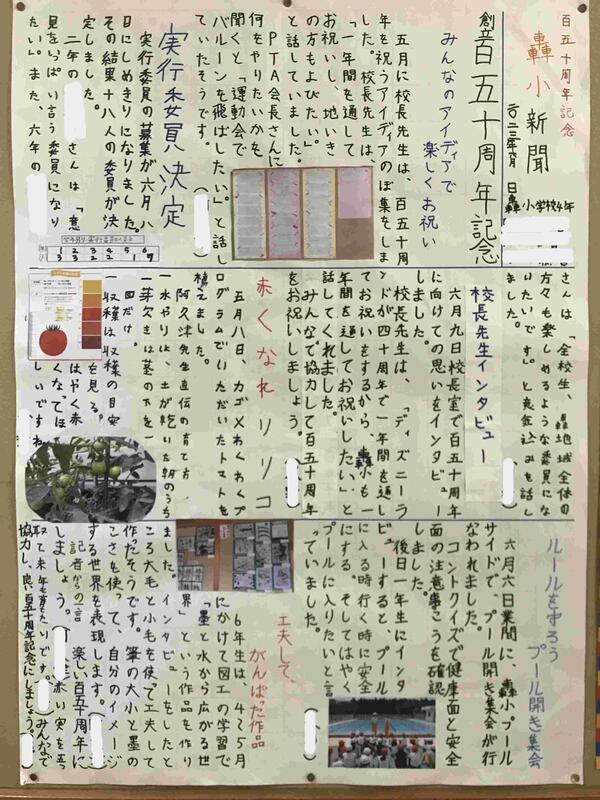 百五十周年記念
轟小新聞
轟小学校4年
創立百五十周年記念
みんなのアイディアで
楽しくお祝い
五月に校長先生は、百五十周
年を祝うアイディアのぼ集をしま
した。校長先生は、
「一年を通して
お祝いし、地いき
の方もよびたい。」
と話していました。
PTA会長さんに
何をやりたいかを
聞くと「運動会で
バルーンを飛ばしたい。」と話し
ていたそうです。
実行委員決定
実行委員の募集が六月八
日にしめきりになりました。
その結果十八人の委員が決
定しました。
二年の
さんは「意
見をいっぱい言う委員になり
たい。」また、六年の
さんは、「全校生、轟地域全体の
方々も楽しめるような委員にな
りたいです。」と意気込みを話し
ました。
校長先生インタビュー
六月九日校長室で百五十周年
に向けての思いをインタビュー
しました。
校長先生は、「ディズニーラ
ンドが四十周年で一年間を通し
てお祝いをするから、轟小も一
年間を通してお祝いしたい。」と
話してくれました。
みんなで協力して百五十周年
をお祝いしましょう。
赤くなれリリコ
五月八日、カゴメわくわくプ
ログラムでいただいたトマトを
植えました。
阿久津先生直伝の育て方
一水やりは、土が乾いた朝のうち
一芽欠きは茎の下を一
回だけ。
一収穫は収穫の目安
を見る。
はやく赤
くなってほ
しいですね
ルールを守ろう
プール開き集会
六月六日業間に、轟小プール
サイドで、プール開き集会が行
なわれました。
コントクイズで健康面と安全
面の注意事こうを確認
しました。
後日一年生にインタ
ビューすると、「プール
に入る時行く時に安全
にする。そしてはやく
プールに入りたい」と言
っていました。
工夫して、
がんばった作品
6年生は、4て5月
にかけて図工の学習で
「墨と水から広がる世
界」という作品を作り
ました。インタビューをしたと
ころ大毛と小毛を使って工夫して
作ったそうです。筆の大小と墨の
こさを使って、自分のイメージ
する世界を表現します。
記者からの一言
楽しい百五十周年に
しましょう。
赤い実を五つ
取って来年も育てたいです。
みんなで
協力し、良い百五十周年記念にしましょう。